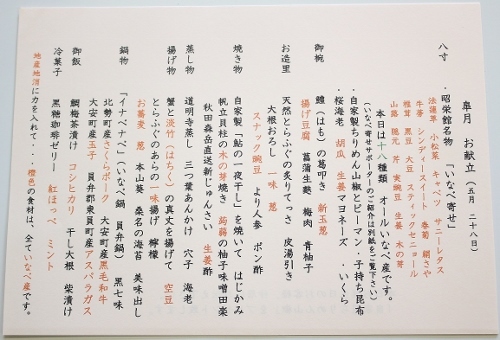 皐月　お献立（五月　二十八日）
八寸　・昭栄館名物　「いなべ寄せ」
法蓮草　小松菜　キャベツ　サニーレタス
牛蒡　シンディースイート　春菊　絹さや
椎茸　黒豆　大豆　スティックセニョール
山蕗　独元　芹　実豌豆　生姜　木の芽
本日は十八種類　オールいなべ産です。
（いなべ寄せサポーターのご紹介は別紙をご覧下さい）
・自家製ちりめん山椒とピーマン・子持ち昆布
・桜海老　胡瓜　生姜マヨネーズ　・いくら
御椀　鱧（はも）の葛叩き　新玉葱
揚げ豆腐　菖蒲生麩　梅肉　青柚子
お造里　天然とらふぐの炙りてっさ　皮湯引き
大根おろし　一味　葱
スナック豌豆　より人参　ポン酢
焼き物　自家製「鮎の一夜干し」を焼いて　はじかみ
帆立貝柱の木の芽焼き　蒟蒻の柚子味噌田楽
秋田森岳直送新じゅんさい　生姜酢
蒸し物　道明寺蒸し　三つ葉あんかけ　穴子　海老
揚げ物　蟹と淡竹（はちく）の真丈を揚げて　空豆
とらふぐのあらの一味揚げ　檸檬
お蕎麦　葱　本山葵　桑名の海苔　美味出し
鍋物　「イナベナベ」（いなべ鍋　員弁鍋）　黒七味
北勢町産さくらポーク　大安町産黒毛和牛
大安町産玉子　員弁郡東員町産アスパラガス
御飯　鯛梅茶漬け　コシヒカリ　干し大根　柴漬け
冷菓子　黒糖珈琲ゼリー　紅ほっぺ　ミント
地産地消に力を入れて・・・橙色の食材は、全ていなべ産です。